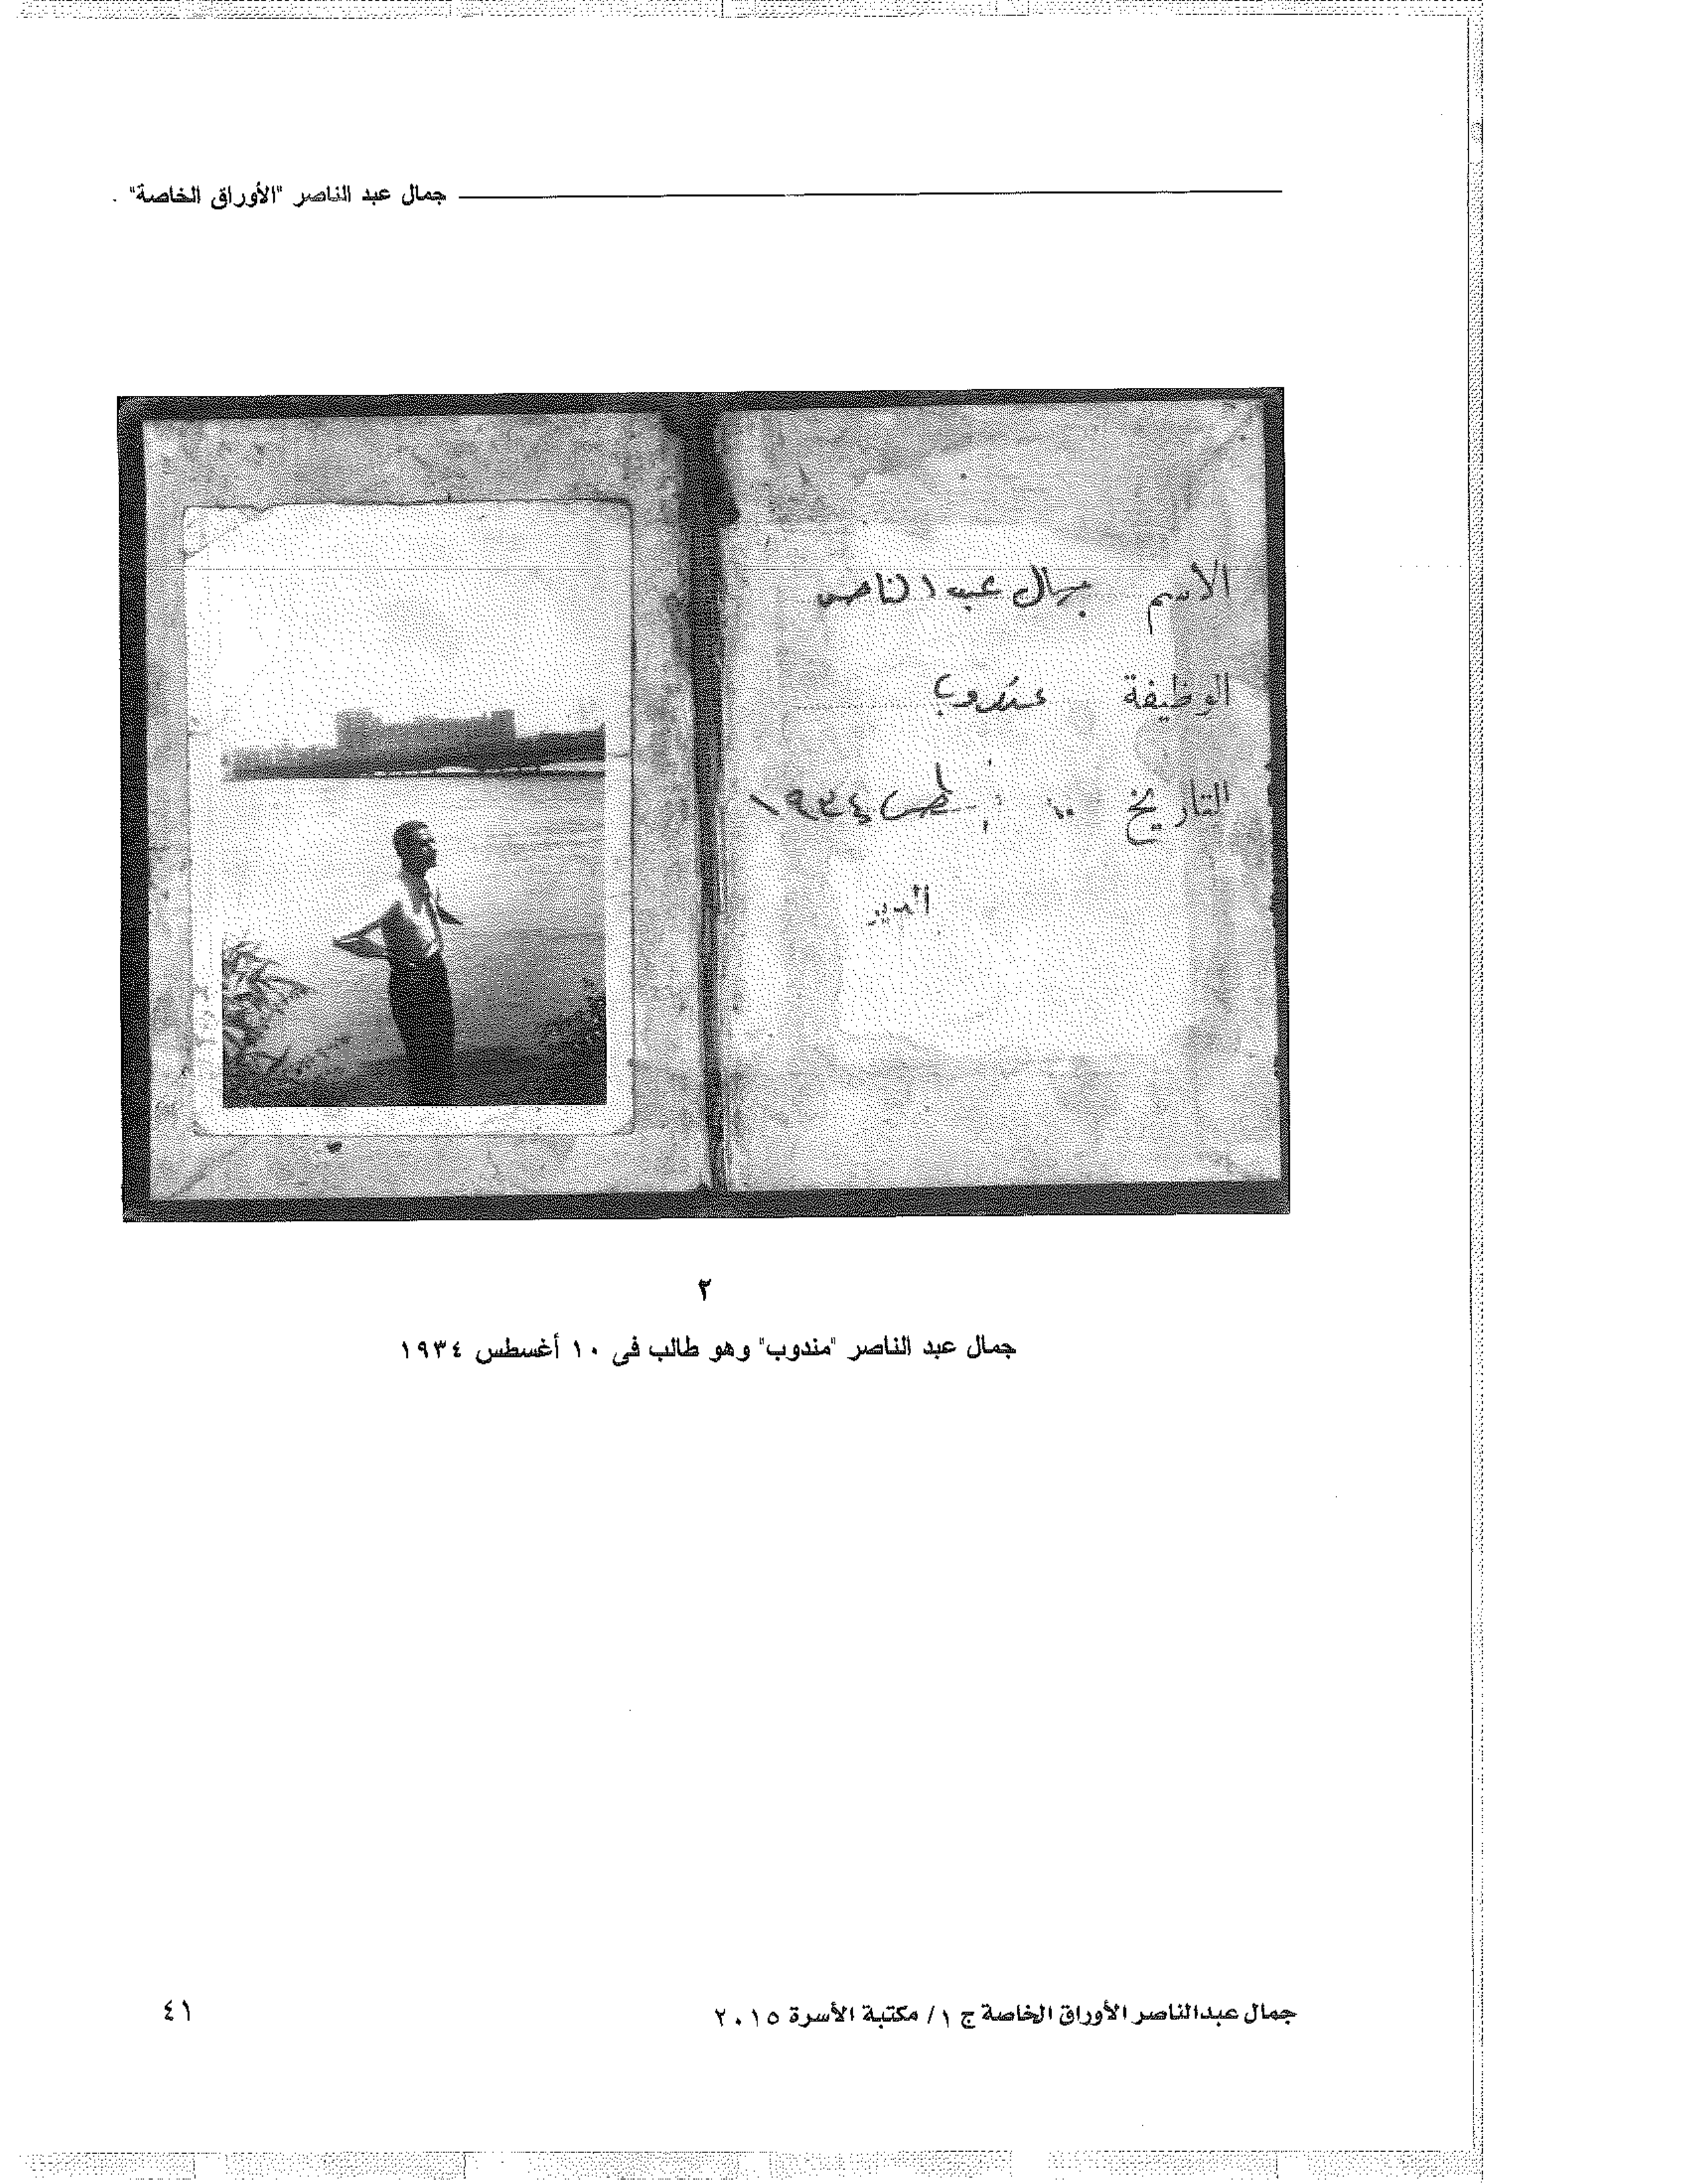 جمال عبد الناصر "الأوراق الخاصة"
الاسم جمال عبد الناصر
الوظيفة مندوب
التاريخ ١٠ أغسطس ١٩٣٤
المدير
٢
جمال عبد الناصر "مندوب" وهو طالب فى ١٠ أغسطس ١٩٣٤
جمال عبدالناصر الأوراق الخاصة ج ١/ مكتبة الأسرة ٢٠١٥
٤١